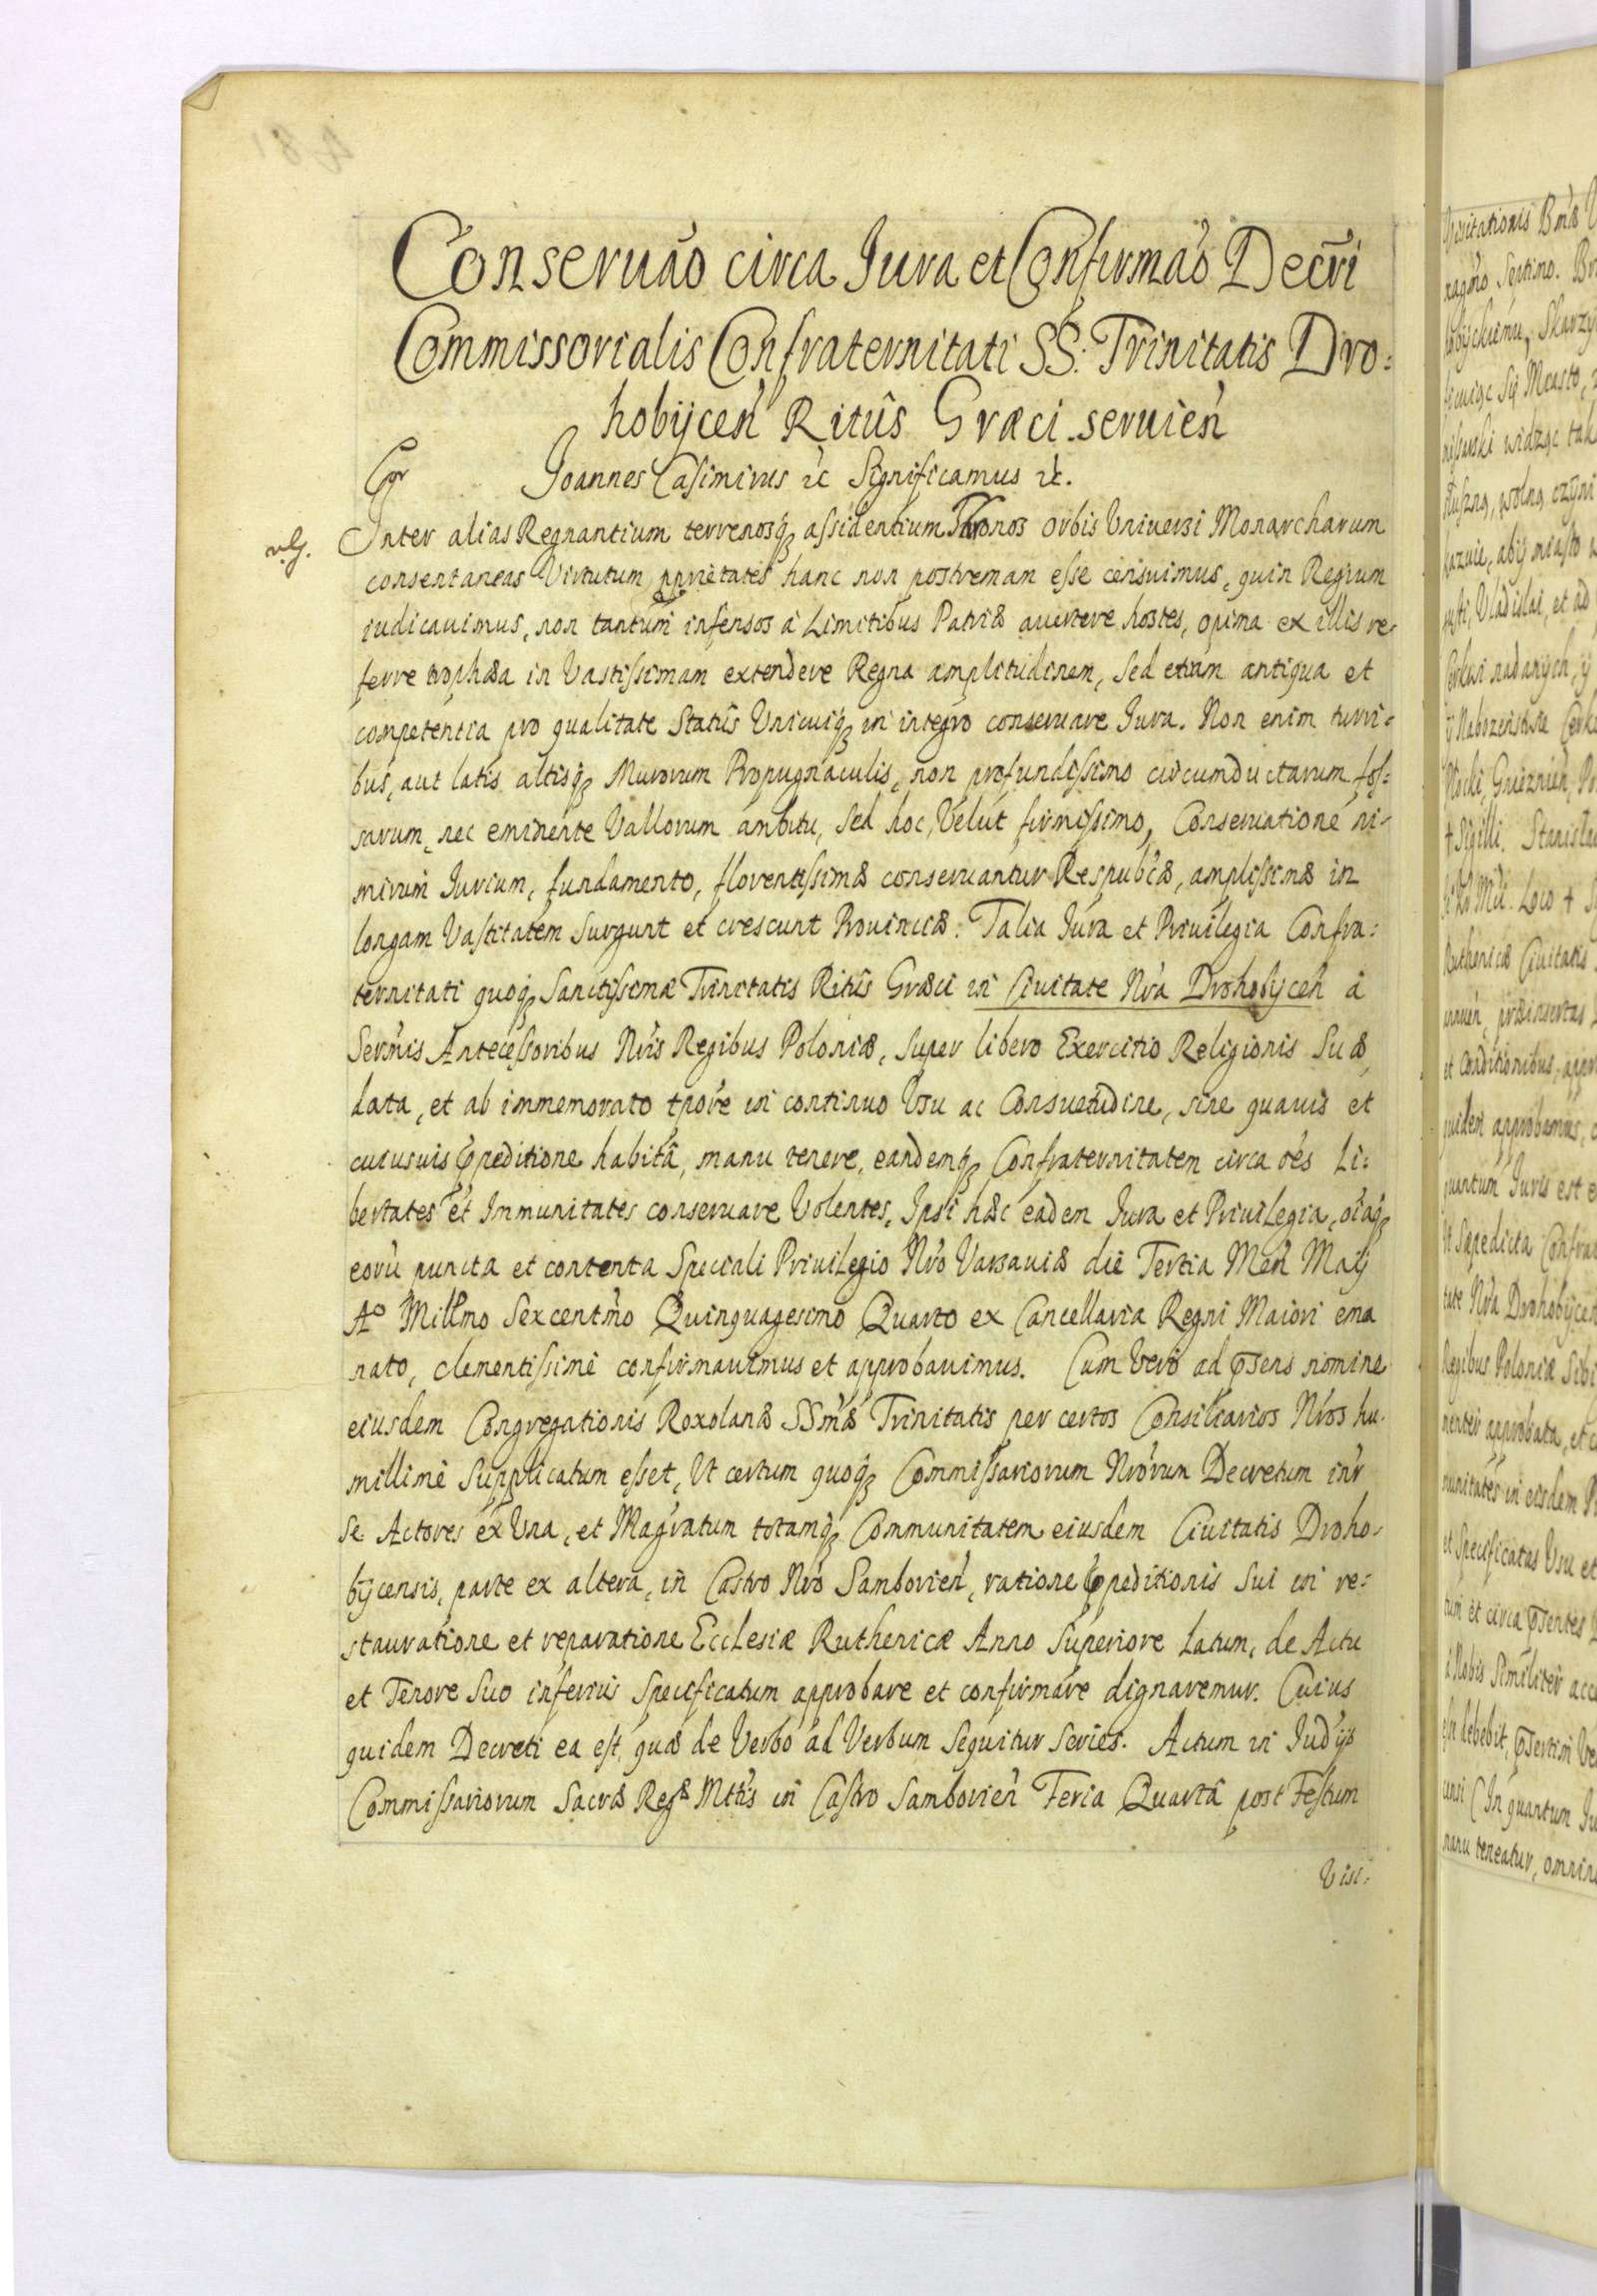 Conseruaõ circa Jura et Confirmaõ Decr̃i
Commissorialis Confraternitati SS: Trinitatis Dro:
hobÿcen̉ Ritûs Græci seruien̉
Joannes Casimirus &c Significamus &c.
Inter alias Regnantium terrenosq́ʒ assidentium Thronos Orbis Vniuersi Monarcharum
consentaneas Virtutum pprietates hanc non postremam esse censuimus, quin Regium
iudicauimus, non tantum infensos à Limitibus Patriæ auertere hostes, opima ex illis re-
ferre trophæa in Vastissimam extendere Regna amplitudinem, sed etiam antiqua et
competentia pro qualitate Statûs Vnicuiq́ʒ in integro conseruare Jura. Non enim turri-
bus, aut latis altisq́ʒ Murorum Propugnaculis, non profundissimo circumductarum fos:
sarum, nec eminente Vallorum ambitu, sed hoc, Velut firmissimo, Conseruatione ni-
mirum Jurium, fundamento, florentissimæ conseruantur Respub̃cæ, amplissimæ in
longam Vastitatem surgunt et crescunt Prouinciæ: Talia Jura et Priuilegia Confra:
ternitati quoq́ʒ Sanctissimæ Trinitatis Ritûs Græci in Ciuitate Nr̃a Drohobÿcen̉ à
Sern̉is Antecessoribus Nr̃is Regibus Poloniæ, super libero Exercitio Religionis Suæ
data, et ab immemorato tpõre in continuo Vsu ac Consuetudine, sine quauis et
cuiusuis ꝑpeditione habitâ, manu tenere, eandemq́ʒ Confraternitatem circa oẽs Li:
bertates et Immunitates conseruare Volentes, Ipsi hæc eadem Jura et Priuilegia, oĩaq́ʒ
eorũ puncta et contenta Speciali Priuilegio Nr̃o Varsauiæ die Tertia Men̉ Maÿ
Aº Millm̃o Sexcentm̃o Quinquagesimo Quarto ex Cancellaria Regni Maiori ema
nato, clementissimè confirmauimus et approbauimus. Cum Verò ad p̃sens nomine
eiusdem Congregationis Roxolanæ SSm̃æ Trinitatis per certos Consiliarios Nr̃os hu-
millimè supplicatum esset, Vt certum quoq́ʒ Commissariorum Nr̃orum Decretum int̃r
se Actores ex Vna, et Magr̃atum totamq́ʒ Communitatem eiusdem Ciuitatis Droho-
bÿcensis, parte ex altera, in Castro Nr̃o Samborien̉, ratione ꝑpeditionis sui in re:
stauratione et reparatione Ecclesiæ Ruthenicæ Anno Superiore Latum, de Actu
et Tenore Suo inferius specificatum approbare et confirmare dignaremur. Cuius
quidem Decreti ea est, quæ de Verbo ad Verbum sequitur series. Actum in Judÿs
Commissariorum Sacræ Regæ Mttis in Castro Samborien̉ Feria Quartâ post Festum
Visi: